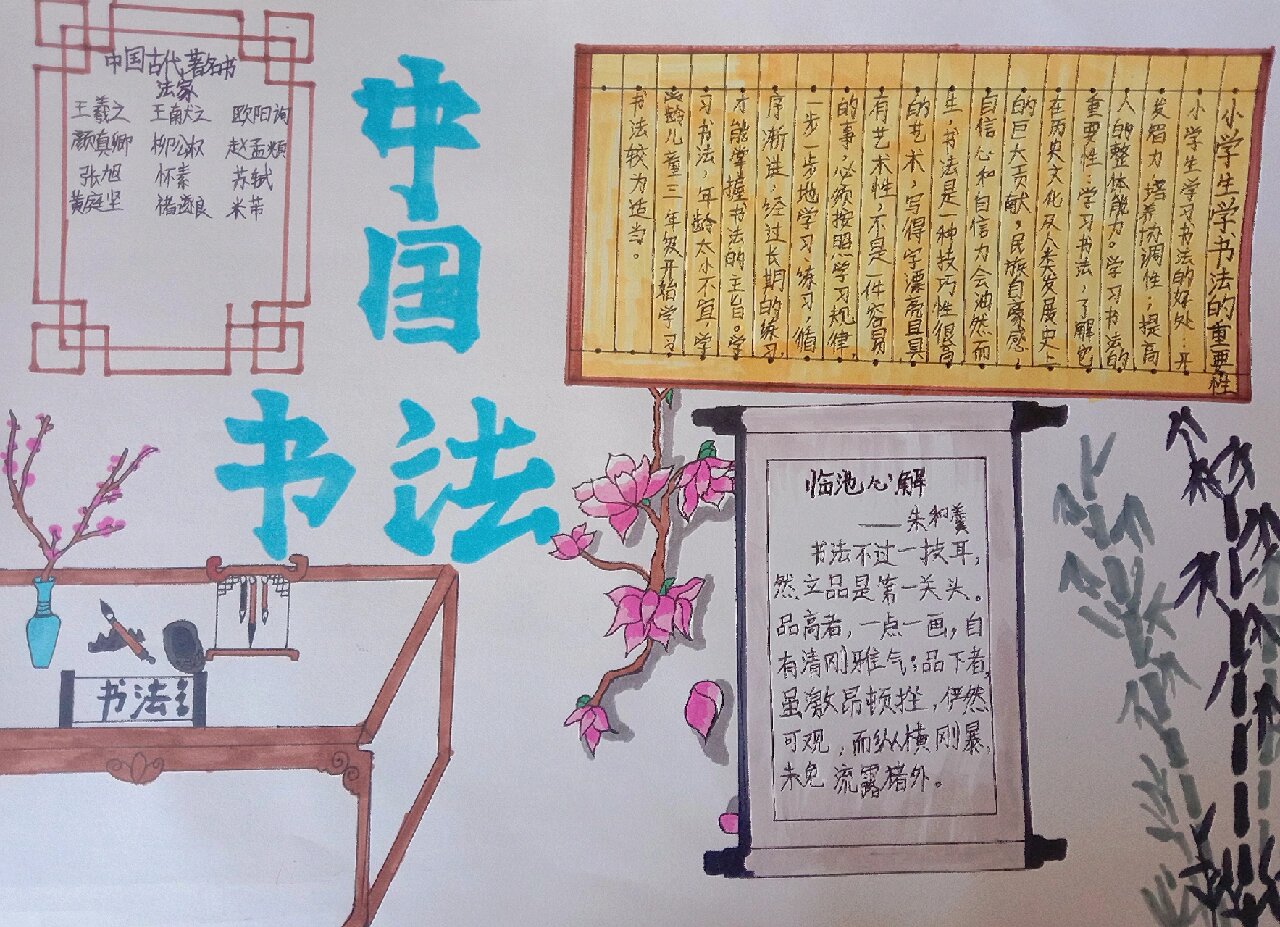 中国古代著名书
法家
王羲之 王献之 欧阳询
颜真卿 柳公权 赵孟頫
张旭 怀素 苏轼
黄庭坚 褚遂良 米芾
中国
书法
小学生学书法的重要性
小学生学习书法的好处:开
发智力,培养协调性,提高
人的整体能力。学习书法的
重要性:学习书法,了解它
在历史文化及人类发展史上
的巨大贡献。民族自豪感
自信心和自信力会油然而
生。书法是一种技巧性很高
的艺术,写得字漂亮且具
有艺术性,不是一件容易
的事,必须按照学习规律,
一步一步地学习、练习,循
序渐进,经过长期的练习
才能掌握书法的主旨。学
习书法,年龄太小不宜,学
龄儿童三年级开始学习
书法较为适当。
临池心解
——朱和羹
书法不过一技耳,
然立品是第一关头。
品高者,一点一画,自
有清刚雅气;品下者,
虽激昂顿挫,俨然
可观,而纵横刚暴,
未免流露猪外。
书法